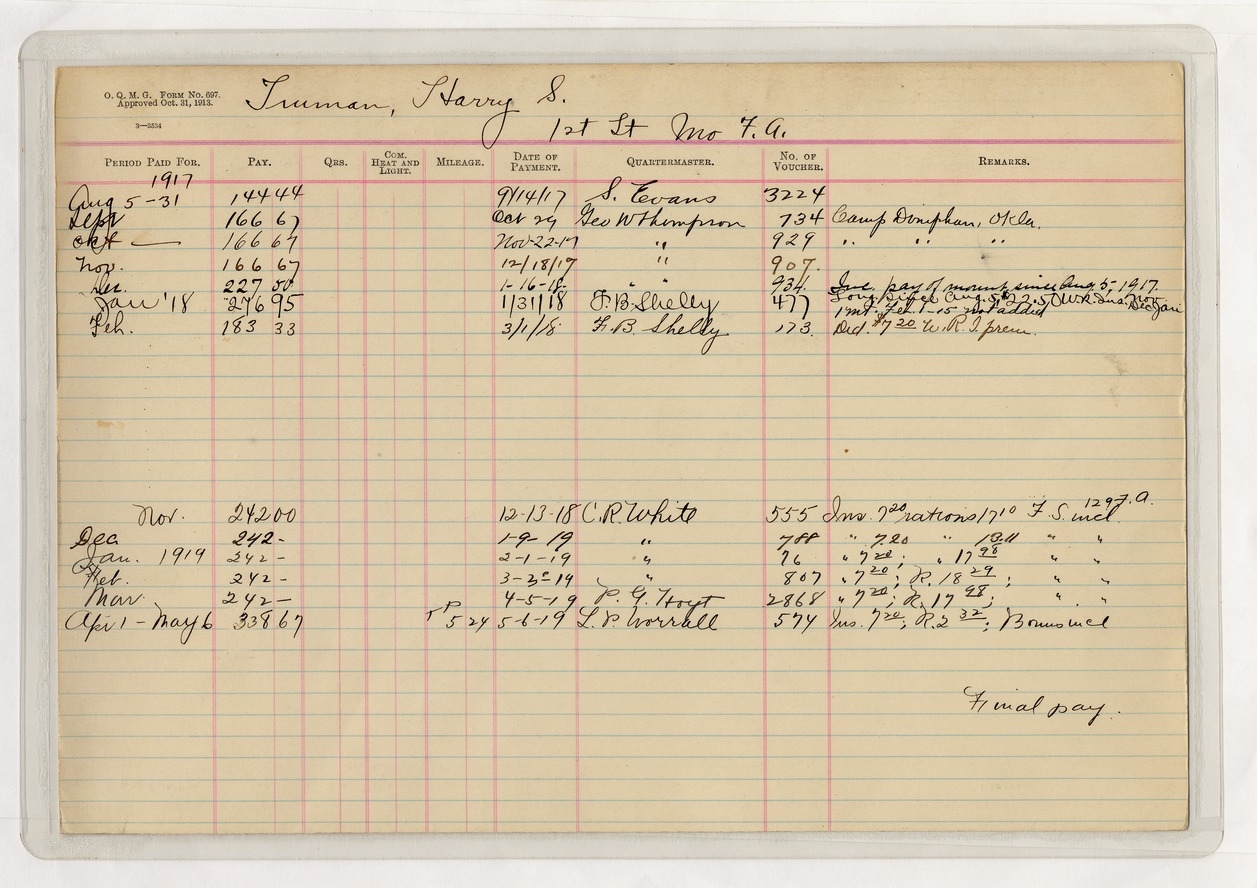 O. Q. M. G. Form No. 697.
Approved Oct. 31, 1913.
3—3534
Truman, Harry S.
1st Lt Mo F.A.
PERIOD PAID FOR. PAY. QRS. COM. HEAT AND LIGHT. MILEAGE. DATE OF PAYMENT. QUARTERMASTER. NO. OF VOUCHER. REMARKS.
1917
Aug 5-31 144 44 9/14/17 S. Evans 3224
Sept 166 67 Oct 29 Geo W Thompson 734 Camp Doniphan, Okla.
Oct — 166 67 Nov-22-17 " 929 " " "
Nov. 166 67 12/18/17 " 907.
Dec. 227 50 1-16-18 " " 934 Inc. pay of mount since Aug 5-1917.
Jan '18 276 95 1/31/18 F. B. Shelly 477 Aug. 5 22.50 W.R. Ins. Nov. Dec Jan
1 mt. Feb. 1-15 not added
Feb. 183 33 3/1/18 F. B. Shelly 173 Ded. $7 20 W. R. I. prem.
129 F.A.
Nov. 242 00 12-13-18 C. R. White 555 Ins. 7 20 rations 17 10 F. S. incl.
Dec 242 - 1-9-19 " 788 " 7.20 " 13.11 " "
Jan. 1919 242 - 2-1-19 " 76 " 7 20; " 17 98 " "
Feb. 242 - 3-3-19 " 807 " 7 20; R. 18 29; " "
Mar. 242 - 4-5-19 P. G. Hoyt 2868 " 7 20; R. 17 98; " "
Apr 1 - May 6 338 67 5 24 5-6-19 L. P. Worrall 574 Ins. 7 20; R. 2 32; Bonus incl
Final pay.